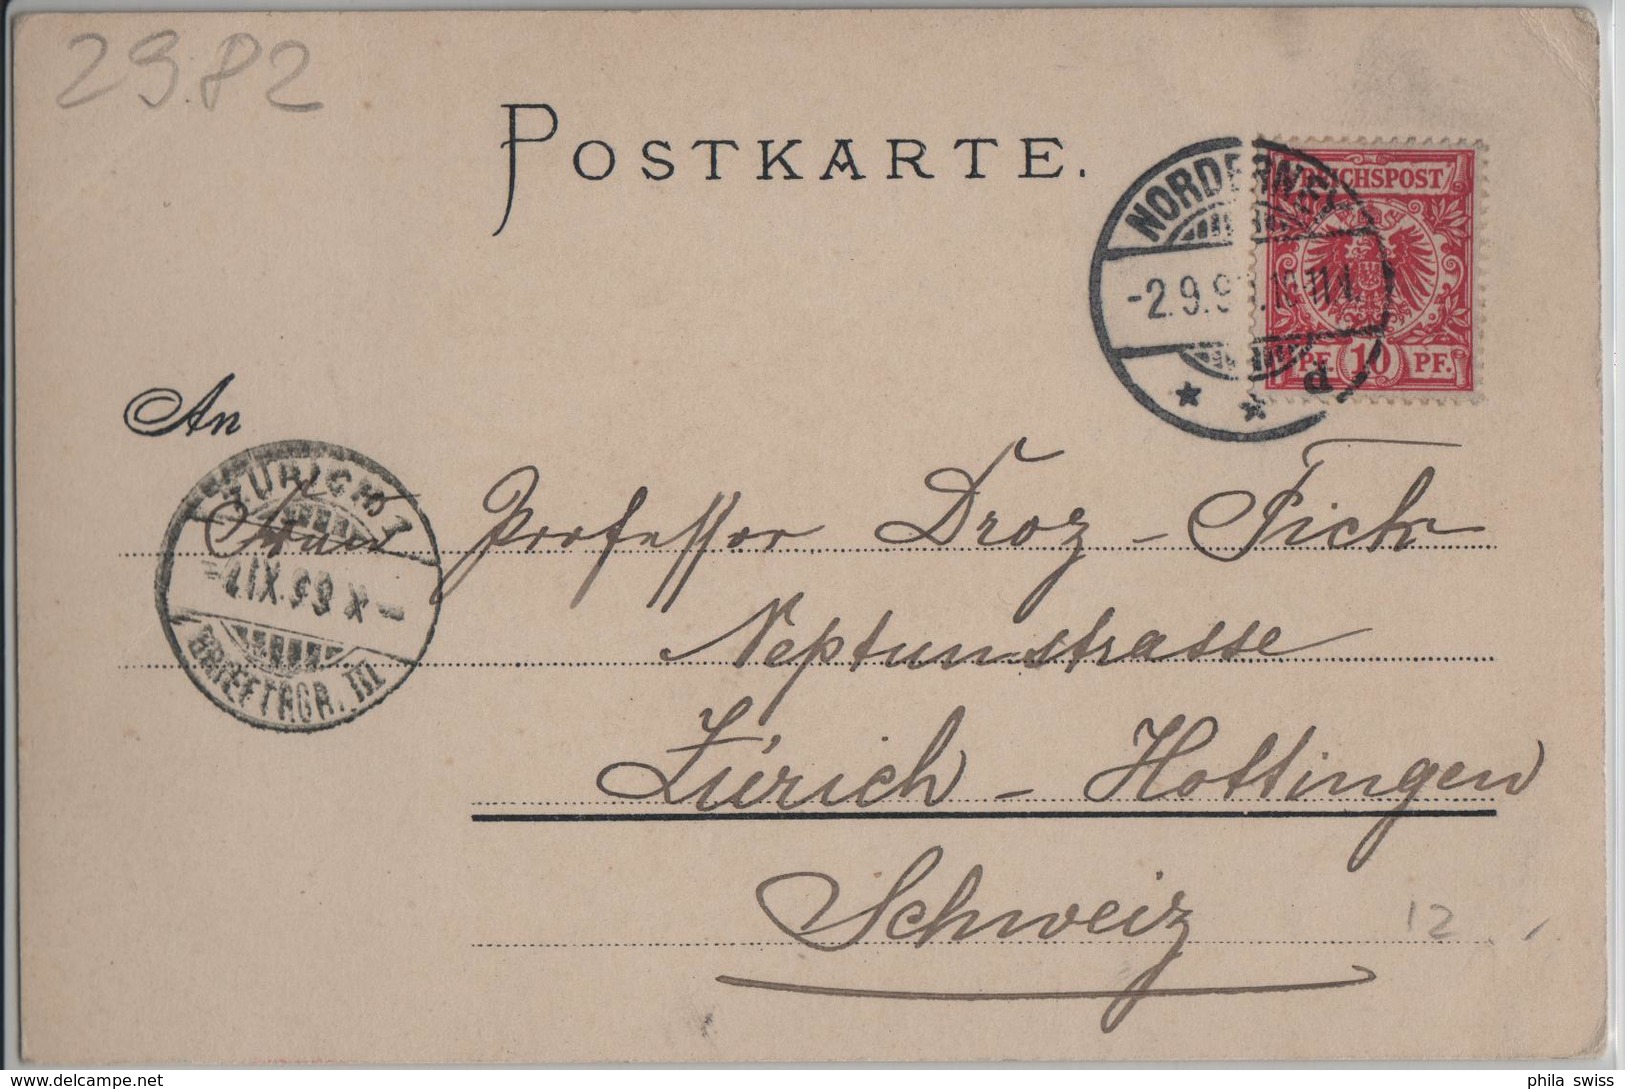 2982
POSTKARTE.
NORDERNEY
REICHSPOST
-2.9.9
10-11V.
PF. 10 PF.
d
An
ZÜRICH 1
IX.99 X-
BRIEFTRGR. III
Frau Professor Droz - Fick
Neptunstrasse
Zürich - Hottingen
Schweiz
12
www.delcampe.net
phila_swiss